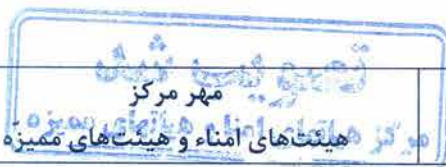 تصویب شد
مهر مرکز
هیئت‌های امناء و هیئت‌های ممیزّه
مرکز هیاتهای امناء و هیاتهای ممیزه